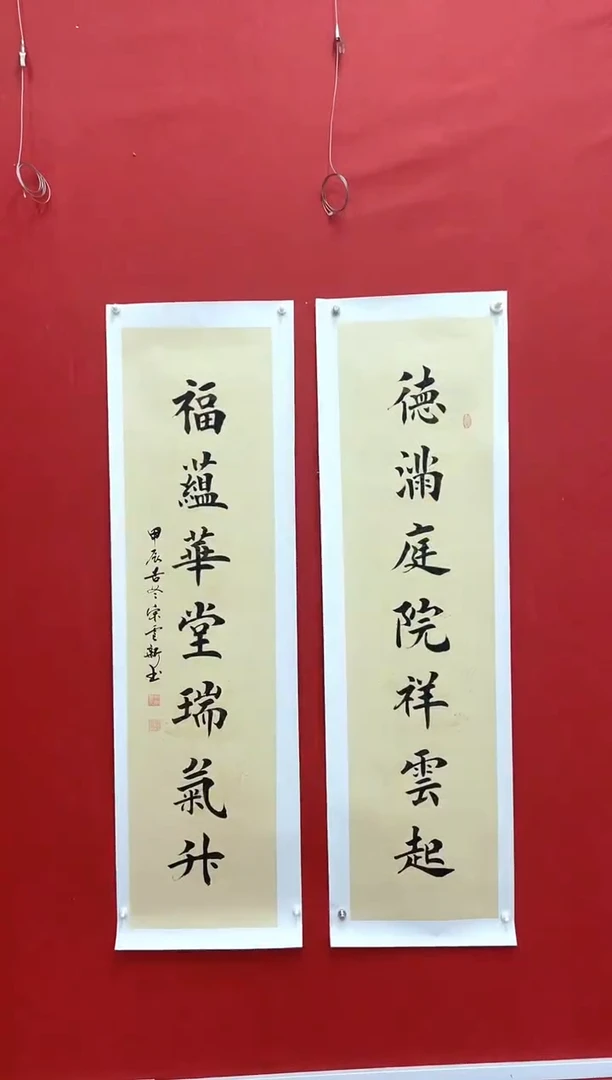 德滿庭院祥雲起
福蘊華堂瑞氣升
甲辰吉冬宗雲新書